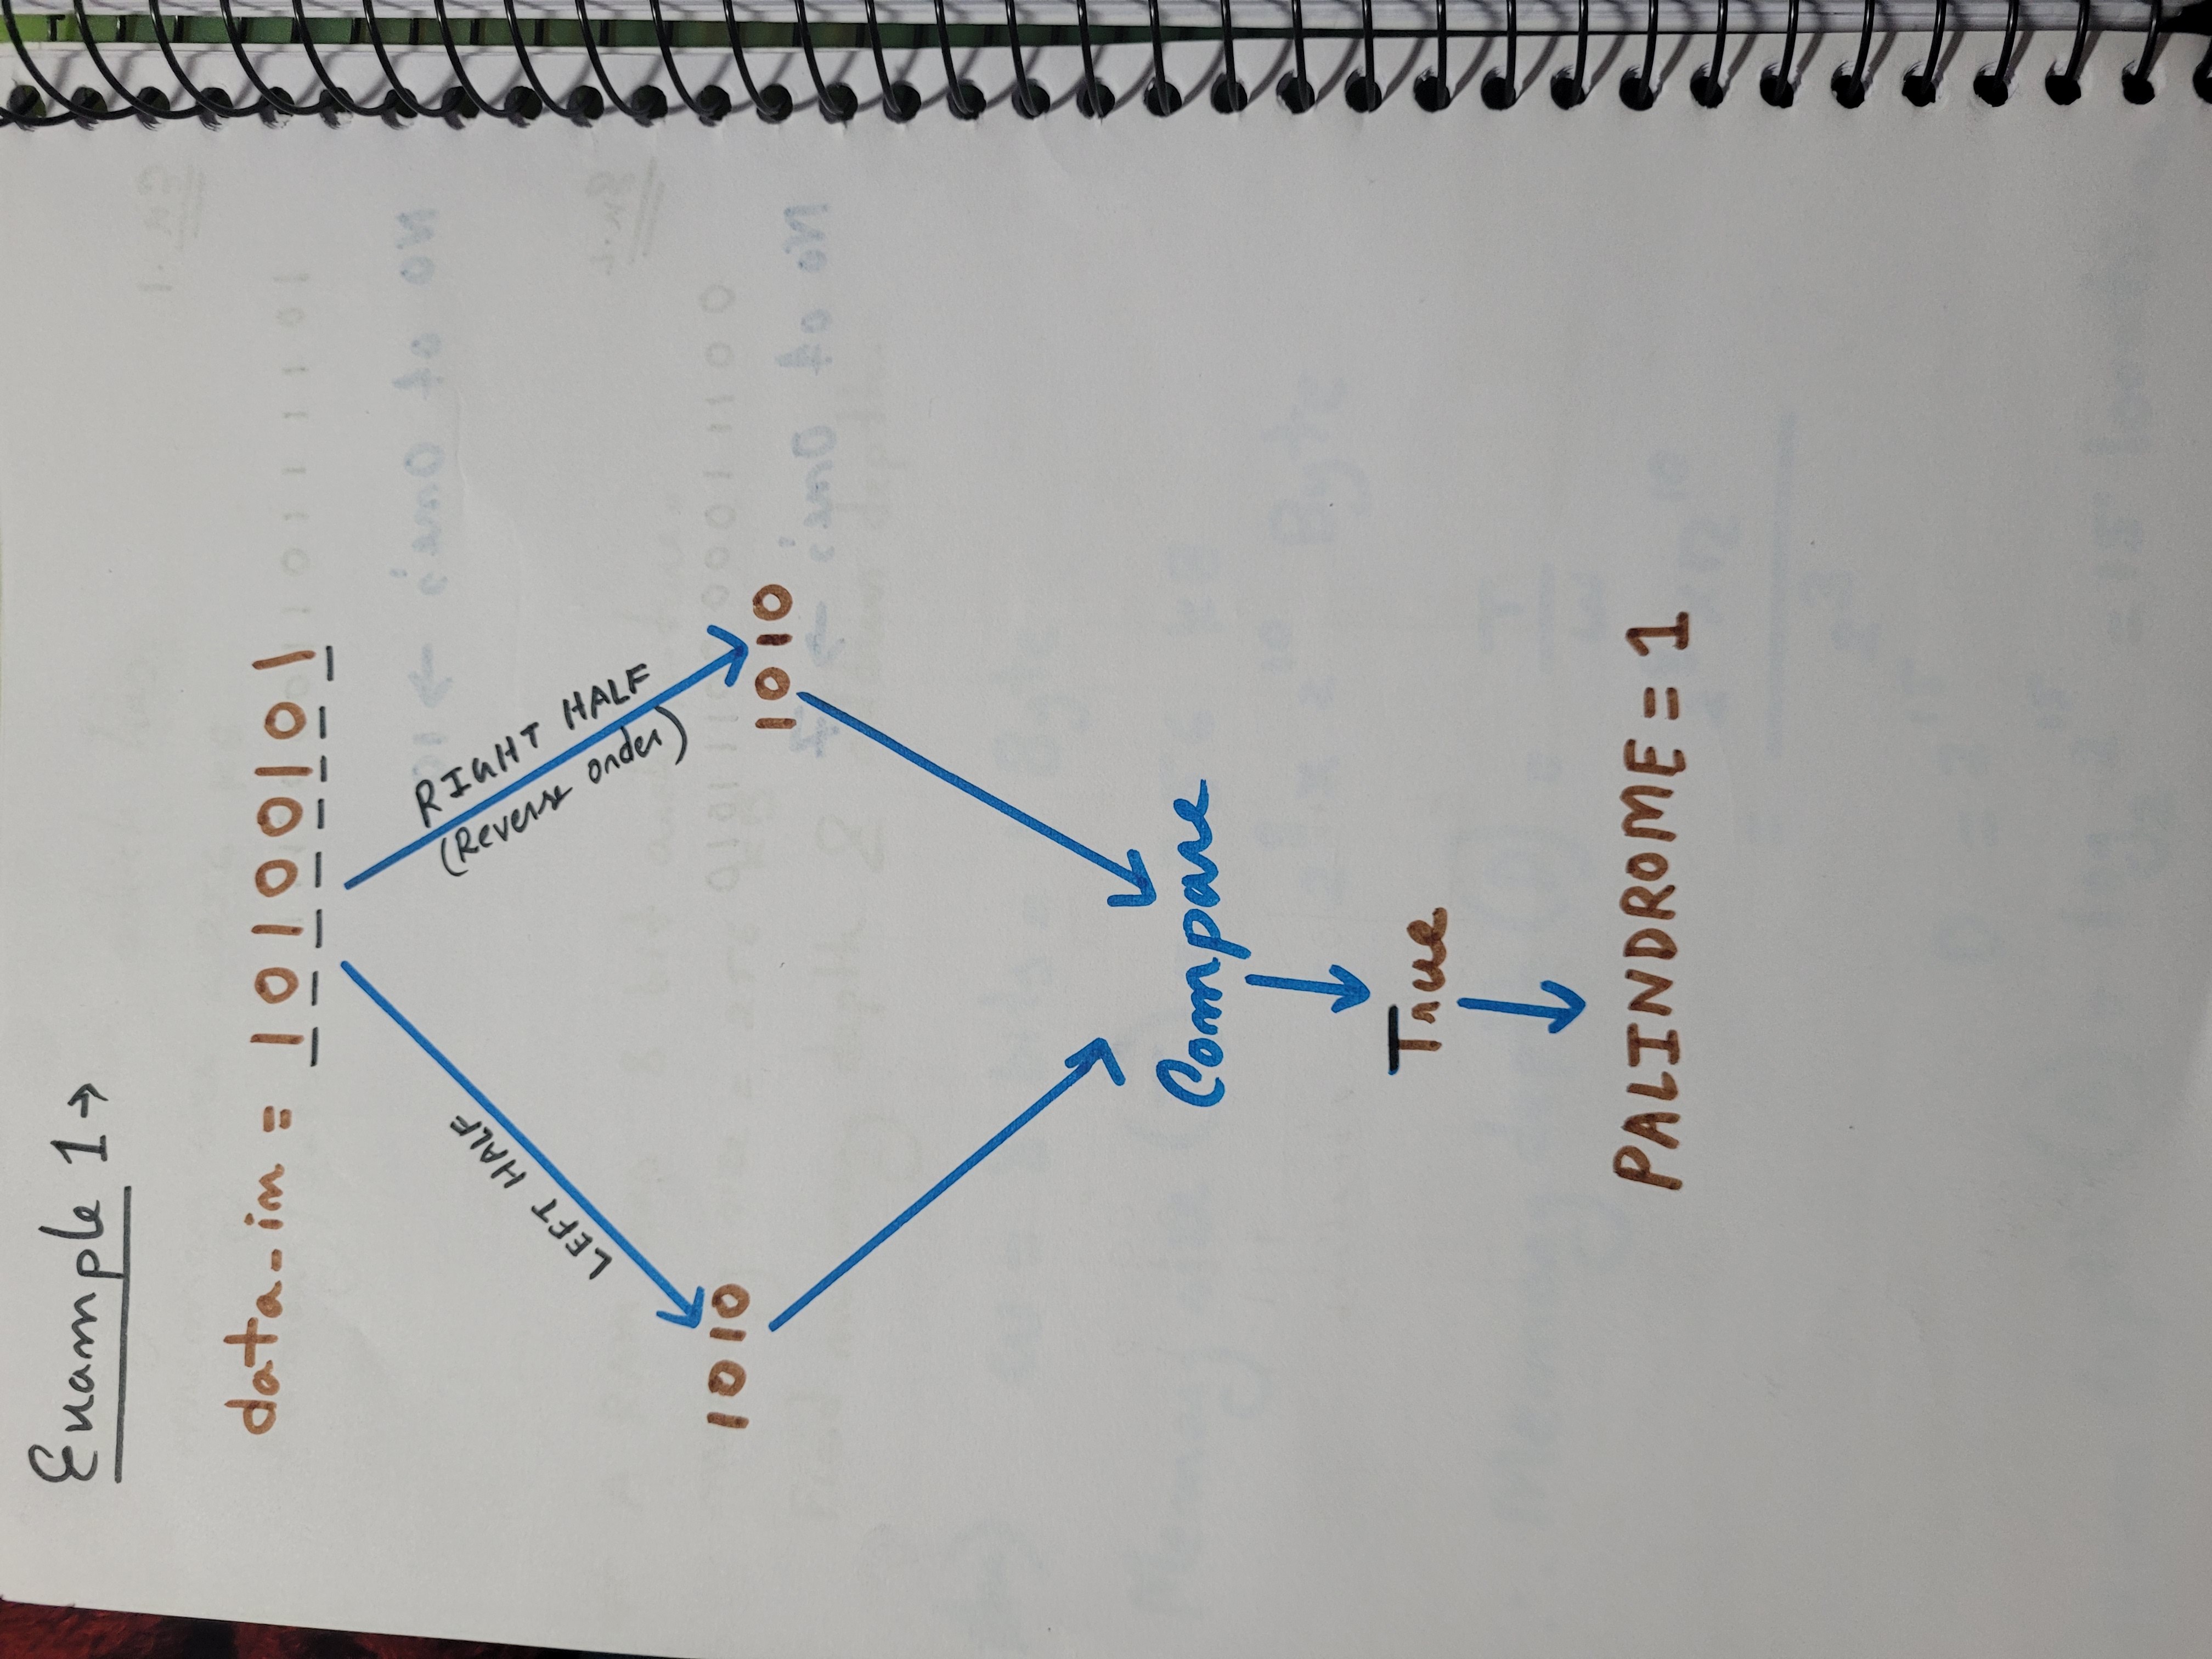 Example 1→
data_in = 10100101
LEFT HALF
RIGHT HALF
(Reverse order)
1010
1010
Compare
True
PALINDROME = 1